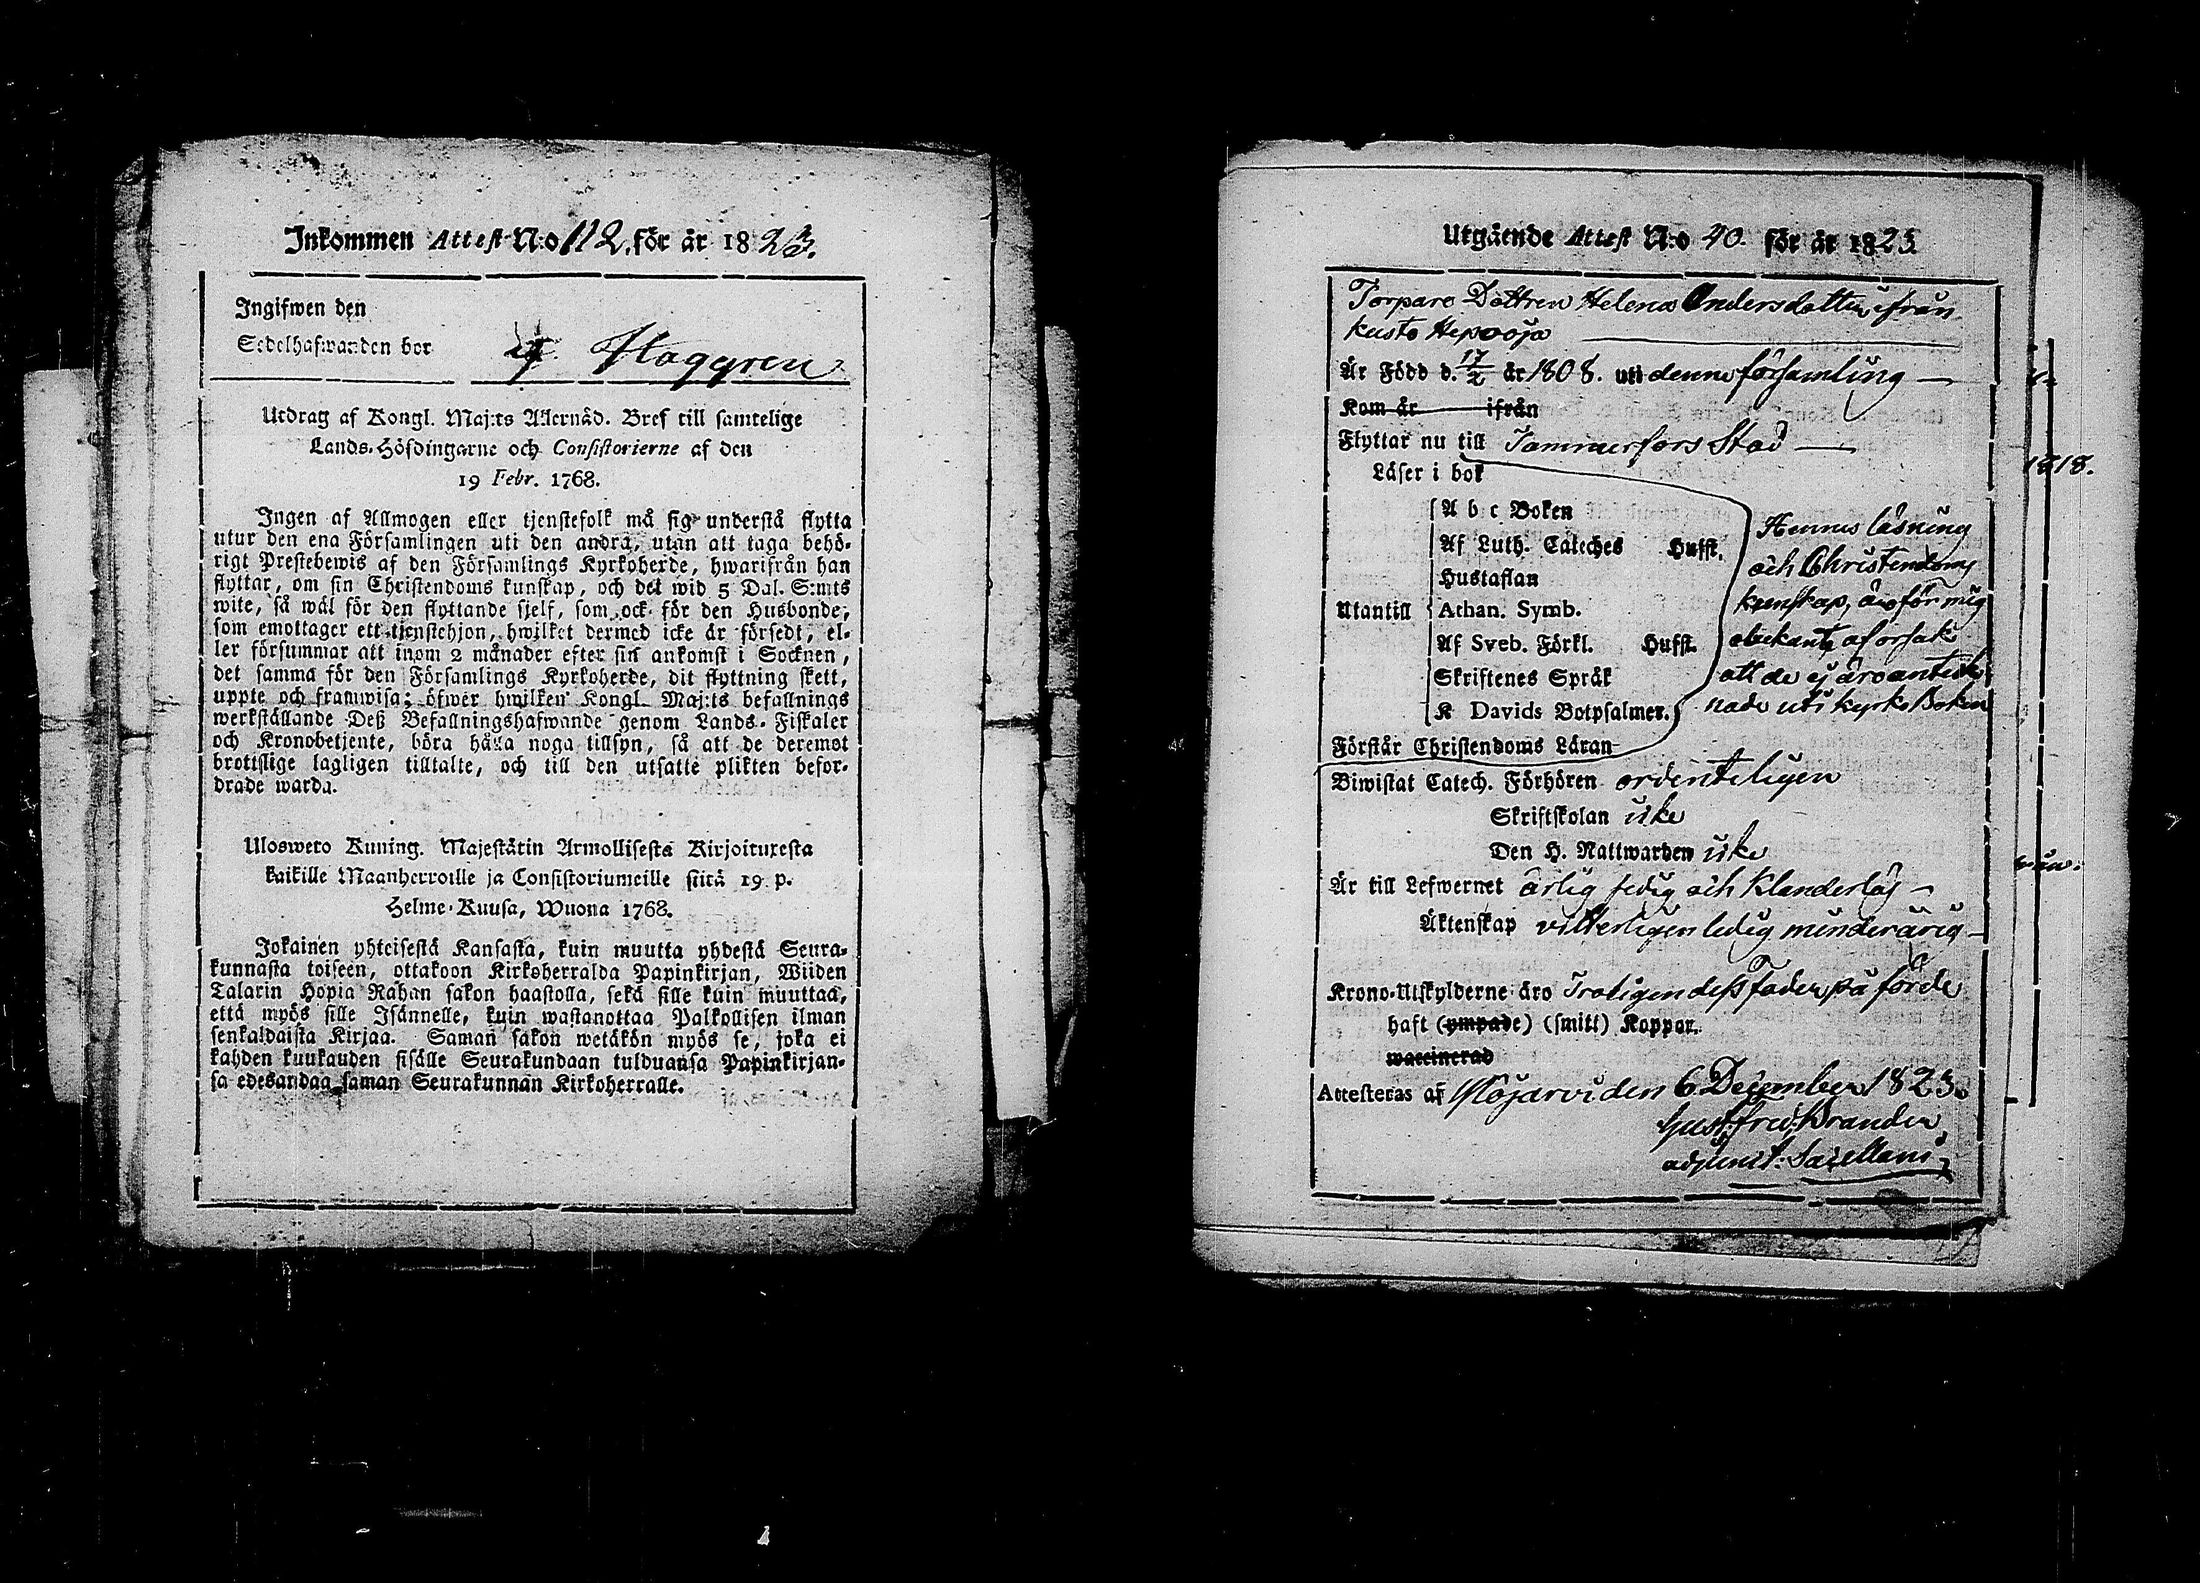 Inkommen Attest N:o 112. för år 1823.
Ingifwen den
Sedelhafwanden bor Haggren
Utdrag af Kongl. Maj:ts Allernåd. Bref till samtelige
Lands-Höfdingarne och Consistorierne af den
19 Febr. 1768.
Ingen af Allmogen eller tjenstefolk må sig understå flytta
utur den ena Församlingen uti den andra, utan att taga behö-
rigt Prestebewis af den Församlings Kyrkoherde, hwarifrån han
flyttar, om sin Christendoms kunskap, och det wid 5 Dal. S:mts
wite, så wäl för den flyttande sjelf, som ock för den Husbonde,
som emottager ett tjenstehjon, hwilket dermed icke är försedt, el-
ler försummar att inom 2 månader efter sin ankomst i Socknen,
det samma för den Församlings Kyrkoherde, dit flyttning skett,
uppte och framwisa; öfwer hwilken Kongl. Maj:ts befallnings
werkställande Deß Befallningshafwande genom Lands-Fiskaler
och Kronobetjente, böra hålla noga tillsyn, så att de deremot
brottslige lagligen tilltalte, och till den utsatte plikten befor-
drade warda.
Uloswero Kuning. Majestätin Armollisesta Kirjoituxesta
kaikille Maanherroille ja Consistoriumeille siitä 19 p.
Helme-Kuusa, Wuona 1768.
Jokainen yhteisestä Kansasta, kuin muutta yhdestä Seura-
kunnasta toiseen, ottakoon Kirkoherralda Papinkirjan, Wiiden
Talarin Hopia Rahan sakon haastolla, sekä sille kuin muuttaa,
että myös sille Isännelle, kuin wastanottaa Palkollisen ilman
senkaldaista Kirjaa. Saman sakon wetäkön myös se, joka ei
kahden kuukauden sisälle Seurakundaan tulduansa Papinkirjan-
sa edesandag saman Seurakunnan Kirkoherralle.
Utgående Attest N:o 40. för år 1823
Torpare Dottren Helena Andersdotter ifrån
Kusto Hepooja
Är Född d. 17/2 år 1808. uti denne församling
Kom år ifrån
Flyttar nu till Tammerfors Stad
Läser i bok
A b c Boken
Af Luth. Cateches Hufst.
Hustaflan
Utantill Athan. Symb.
Af Sveb. Förkl. Hufst.
Skriftenes Språk
K Davids Botpsalmer.
Förstår Christendoms Läran
Hennes läsning
och Christendoms
kunskap, äro för mig
obekant af orsak
att de ej äro anteck-
nade uti kyrko Boken
Biwistat Catech. Förhören ordenteligen
Skriftskolan icke
Den H. Nattwarden icke
Är till Lefwernet ärlig sedig och Klanderlös
Äktenskap vitterligen ledig minderårig
Krono-Utskylderne äro Troligen dess Fader påförde
haft (ympade) (smitt) Koppor.
waccinerad
Attesteras af Ylöjärvi den 6 December 1823.
Gust: Fred: Brander
adjunct: Sacellani
1818.